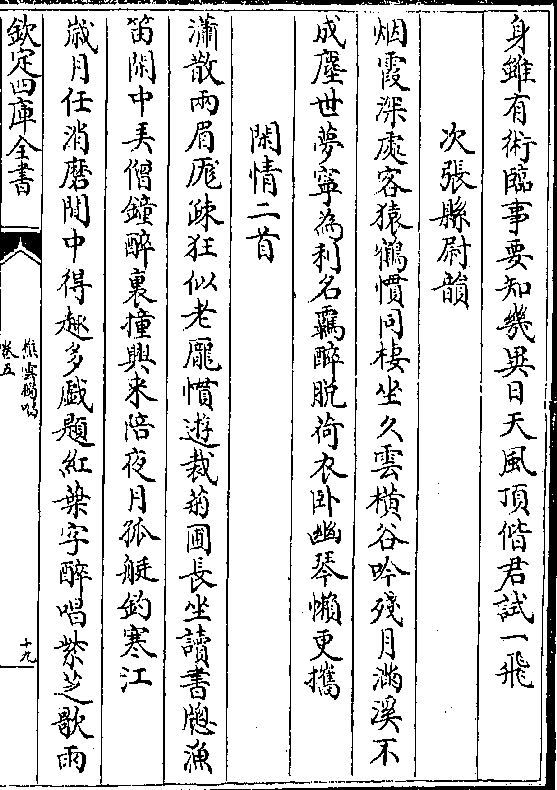 身雖有術臨事要知幾異日天風頂偕君試一飛
次張縣尉韻
烟霞深處客猿鶴慣同棲坐久雲橫谷吟殘月滿溪不
成塵世夢寧為利名覊醉脫荷衣卧幽琴懶更攜
閑情二首
瀟散兩眉厖疎狂似老龎慣遊栽菊圃長坐讀書牕漁
笛閑中弄僧鐘醉裏撞興来陪夜月孤艇釣寒江
歲月任消磨閒中得趣多戲題紅葉字醉唱紫芝歌雨
欽定四庫全書
樵雲獨唱
卷五
十九